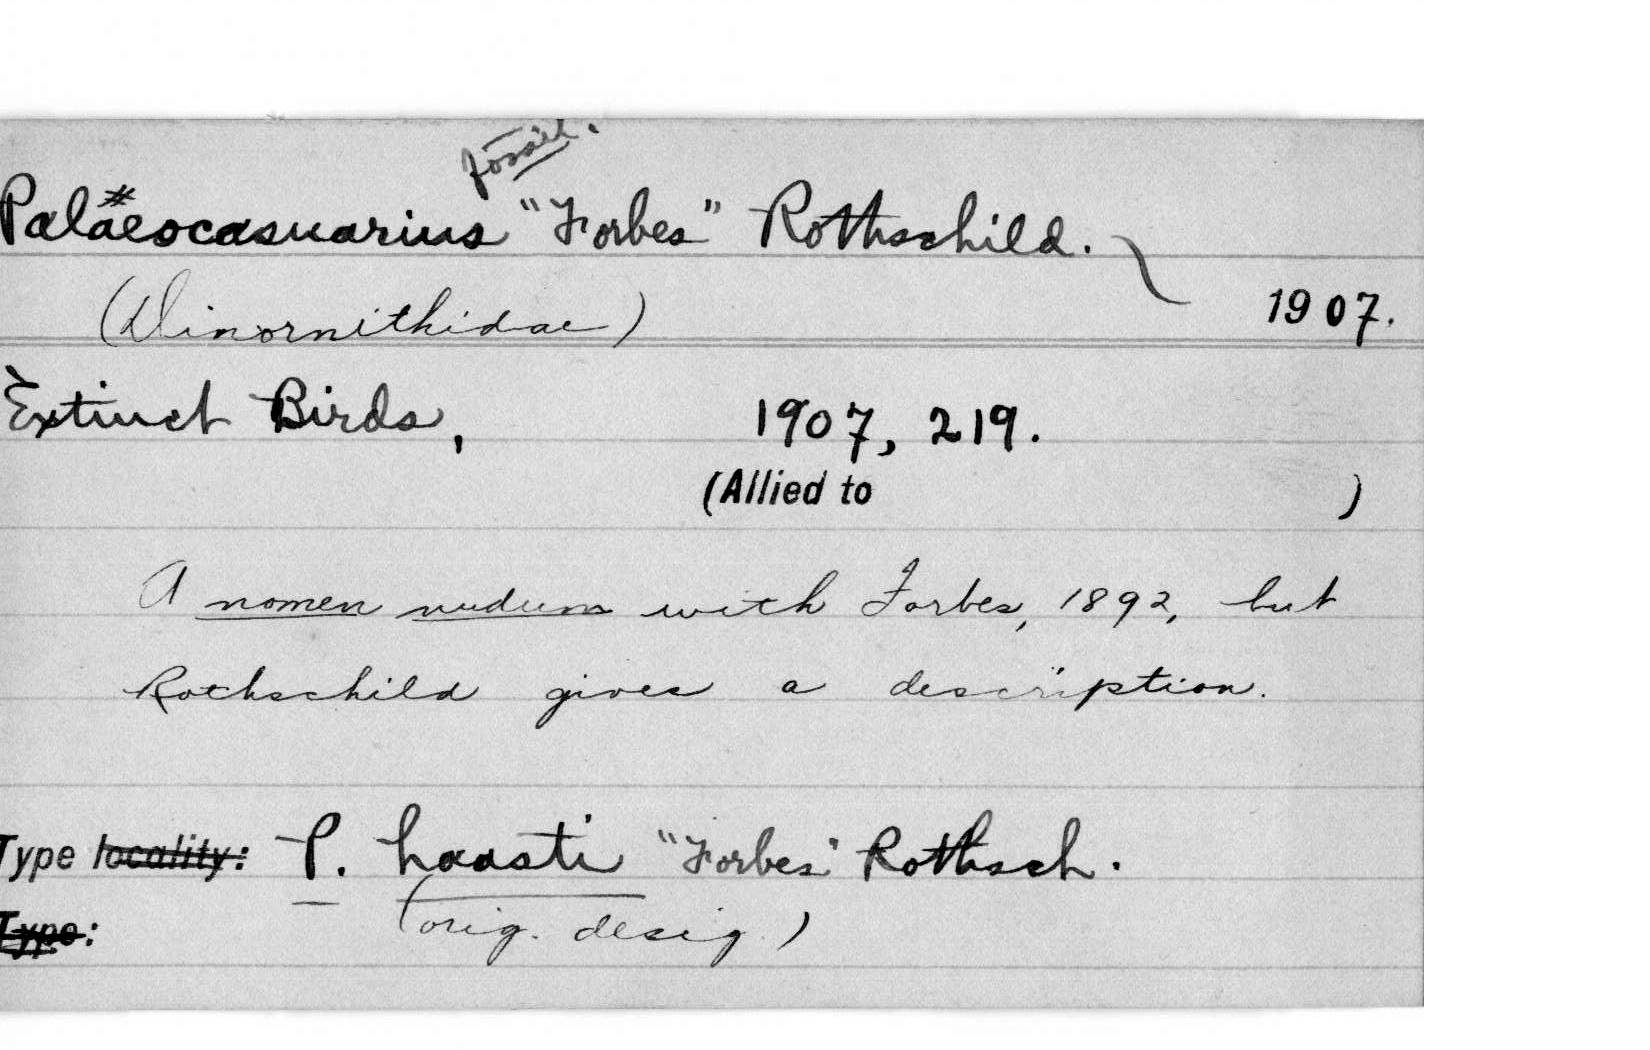 fossil.
Palaeocasuarius "Forbes" Rothschild.
(Dinornithidae) 1907.
Extinct Birds, 1907, 219.
(Allied to )
A nomen nudum with Forbes, 1892, but
Rothschild gives a description.
Type locality: P. haasti "Forbes" Rothsch.
Type: (orig. desig.)